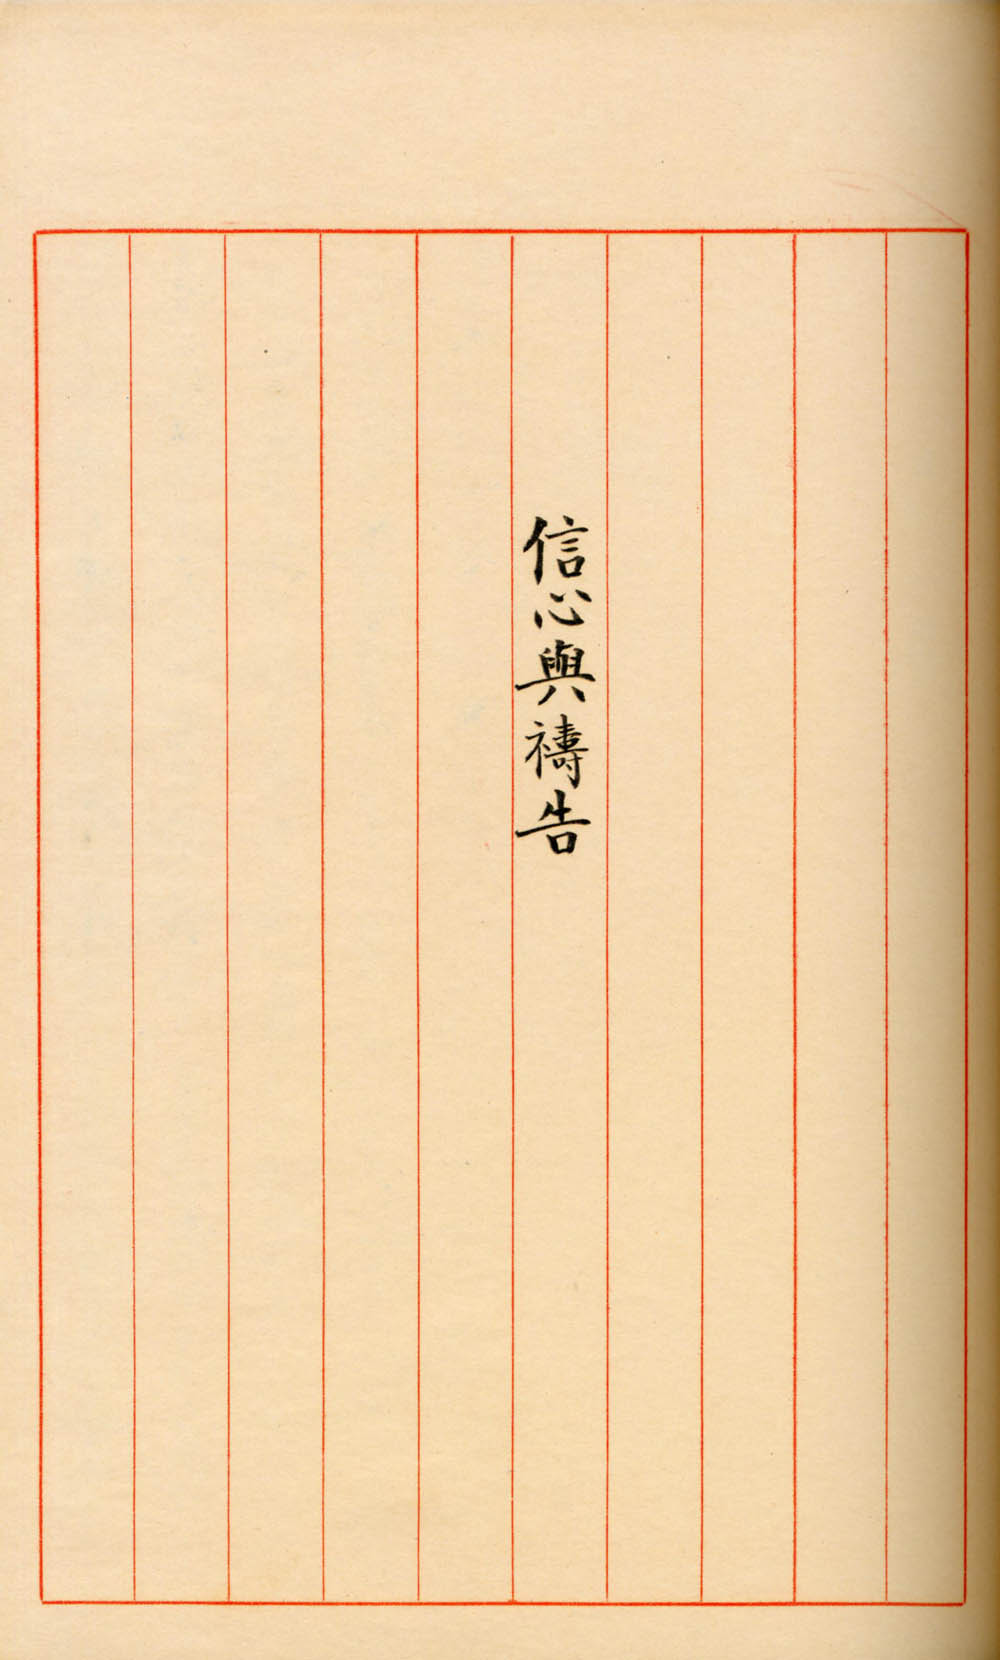 信心與禱告